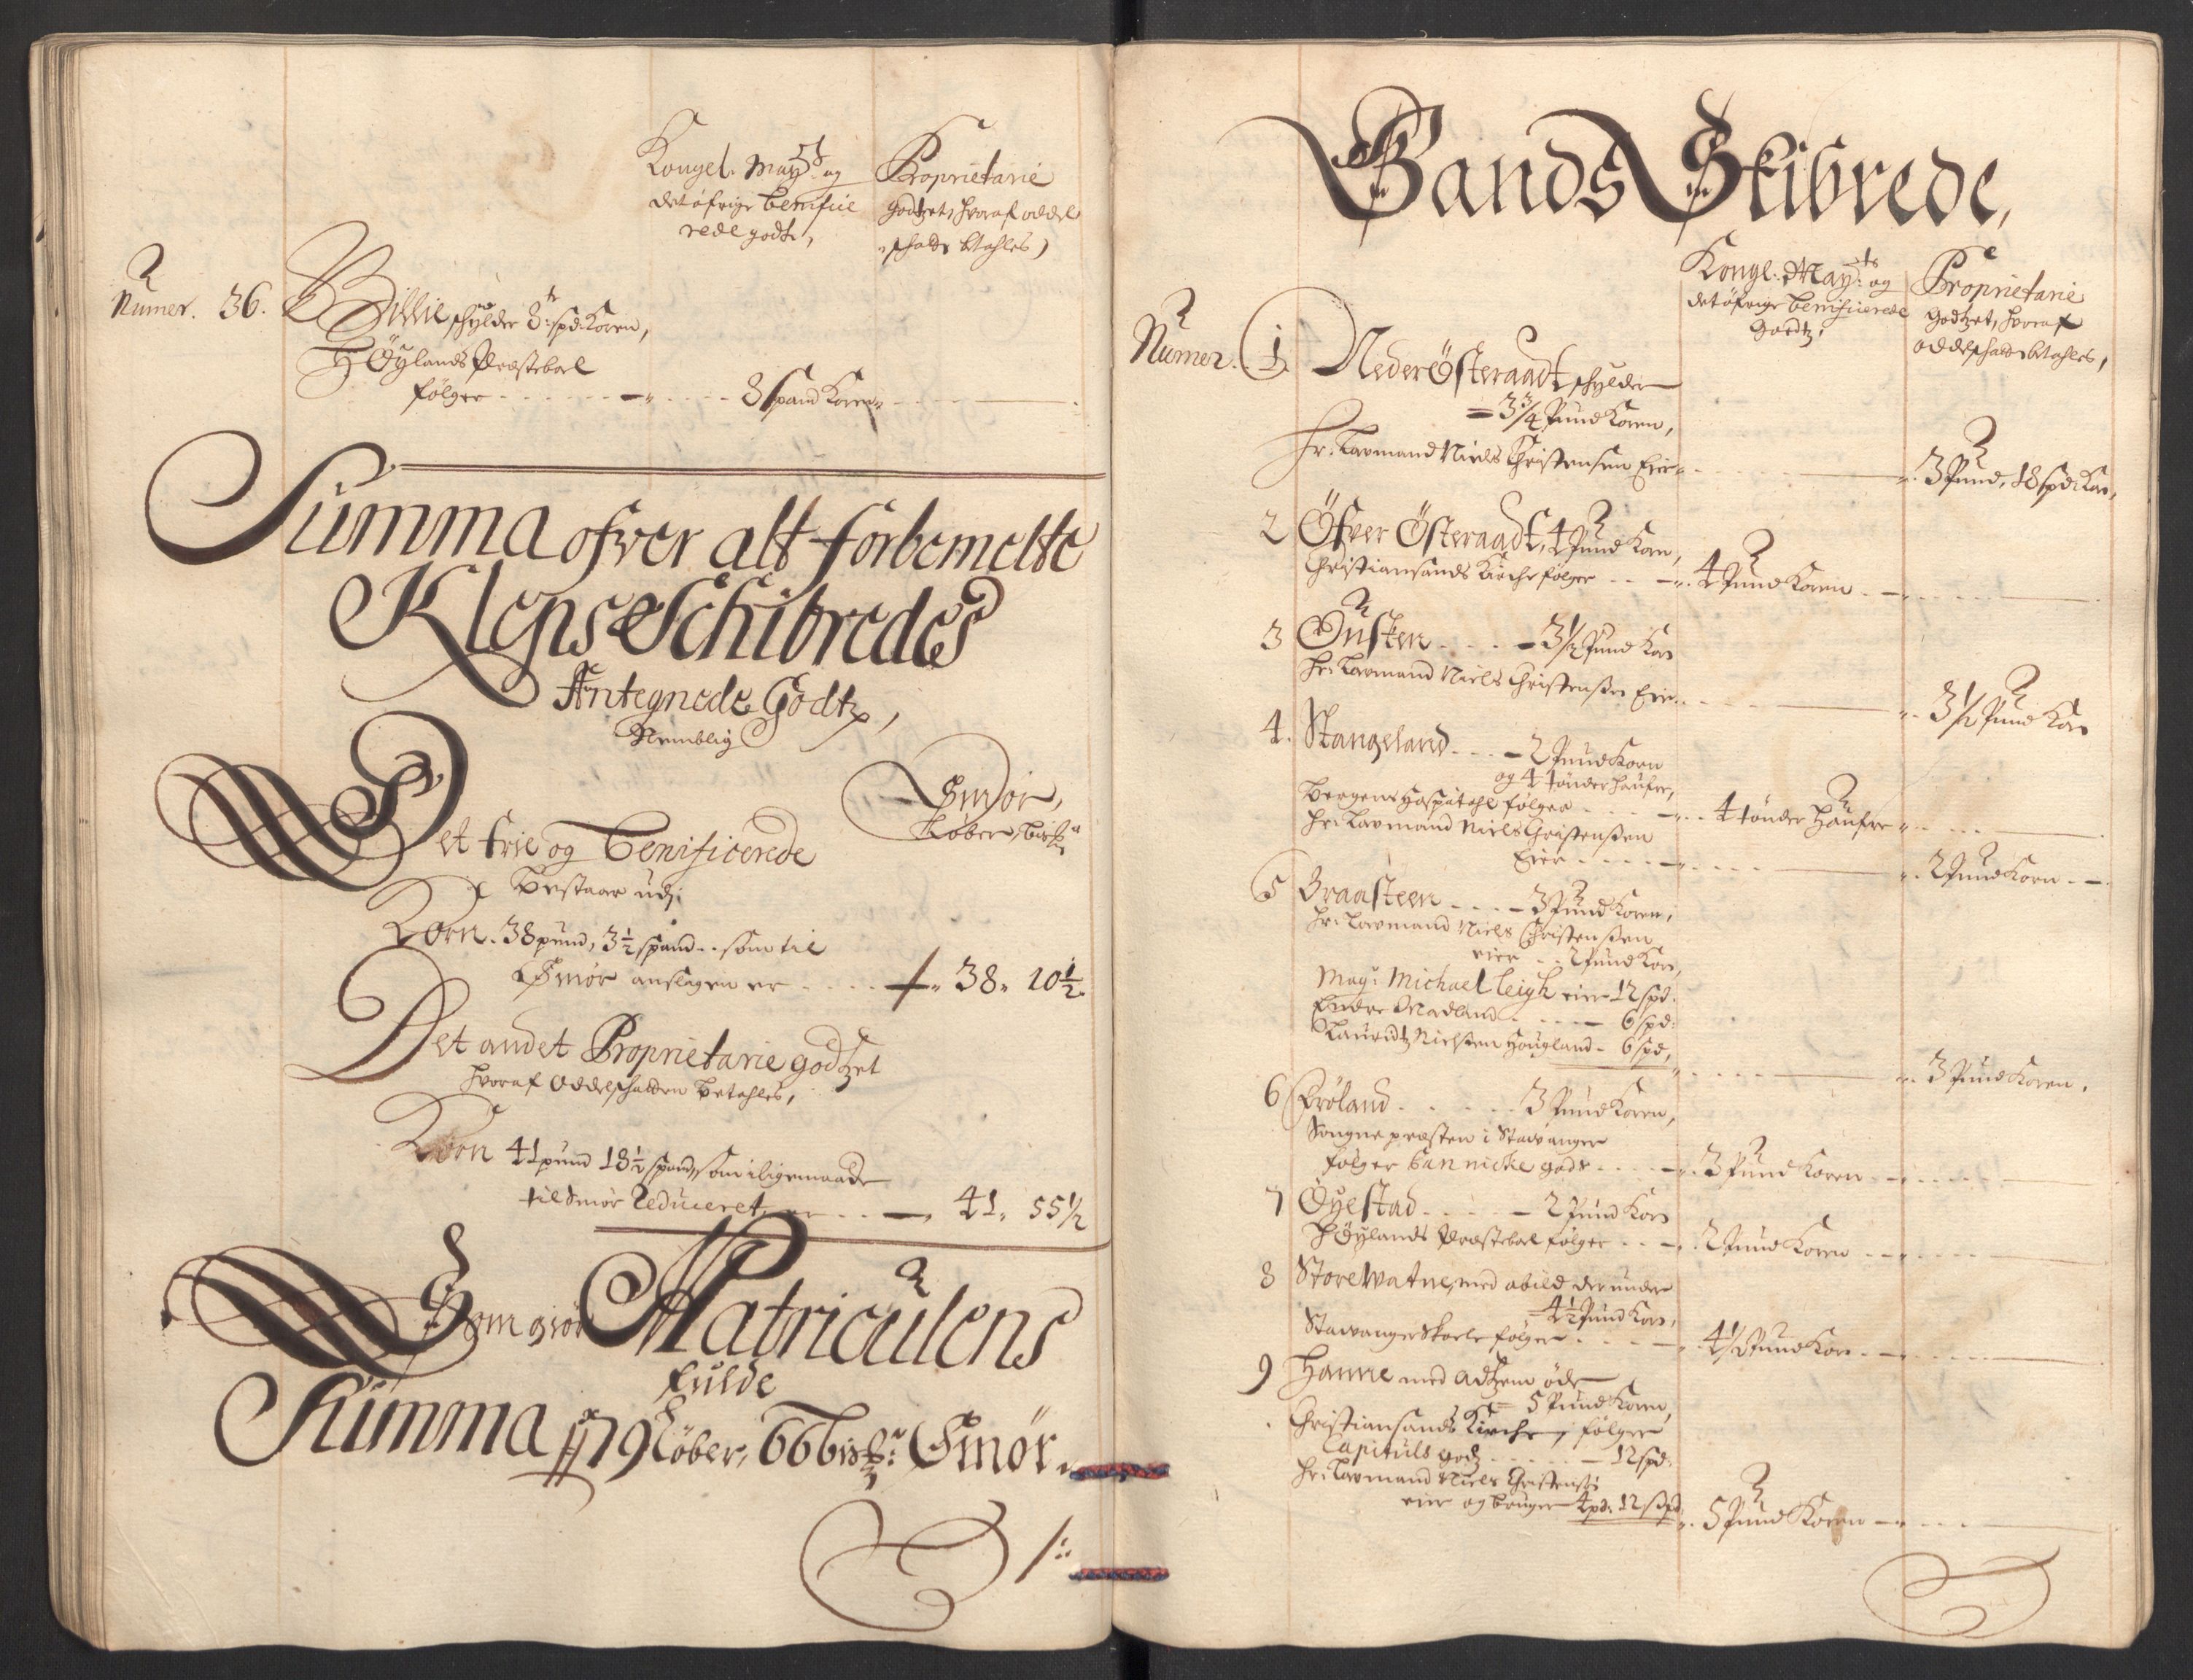 Kongel. Mayts og
det øfrige benificie
rede godts,
Proprietarie
godtzet, hvoraf oddel
schatt betahles,
Numer. 36. Billie schylder 8: spd: Koren,
Høylands Præstebol
følger - - - 8 Spand Koren
Summa ofver alt forbemelte
Kleps Schibredes
Antegnede Godtz,
Nemblig
Smør,
Løber, bisf.r
Det frie og Benificerede
bestaar udj
Korn. 38 pund, 3½ spand - som til
Smør anslagen er - - - 38. 10½
Det andet Proprietarie godtzet
hvoraf Oddelschatten betahles,
Korn 41 pund 18½ spand, som iligemaade
til Smør Reduceret, er - - 41. 55½
Som giør Matriculens
fulde
Summa 79 Løber, 66 bisf.r Smør.
Gands Skibrede,
Kongl. Mayts og
det øfrige benificerede
Goedtz,
Proprietarie
Godtzet, hvoraf
oddelschatt betahles,
Numer. 1 Neder Østeraadt schylder
3¾ Pund Koren,
Hr. Lavmand Niels Christensen Eier - - - 3 Pund, 18 spd: Kor,
2 Øfver Østeraadt, 4 Pund Korn,
Christiansands Kirche følger - - 4 Pund Koren
3 Ousten - - - 3½ Pund Korn
Hr. Lavmand Niels Christensen Eier - - - 3½ Pund Korn
4. Stangeland - - - 2 Pund Korn
og 4 tønder haufre,
Bergens Hospitahl følger - - - 4 tønder Haufre
Hr. Lavmand Niels Christensen
Eier - - - 2 Pund Korn
5 Graasteen - - - 3 Pund Koren,
Hr. Lavmand Niels Christensen
eier - - 2 Pund Kor,
May: Michael Leigh eier 12 spd:
Endre Madland - - - 6 spd:
Lauridtz Nielsen Hougland - 6 spd,
- - - 3 Pund Koren.
6 Frøland - - - 3 Pund Koren,
Sognepræsten i Stavanger
følger Cannicke gods - - - 3 Pund Koren
7 Øyestad - - - 2 Pund Korn
Høylands Præstebol følger - - 2 Pund Koren
8 Store Watne, med abild der under
4½ Pund Korn,
Stavanger Skoele følger - - - 4½ Pund Kor
9 Hanne med Adtzem øde
5 Pund Koren,
Christiansands Kirche følger
Capituls godtz - - - 12 spd:
Hr. Lavmand Niels Christens:
eier og bruger 4 pd: 12 spd 5 Pund Koren